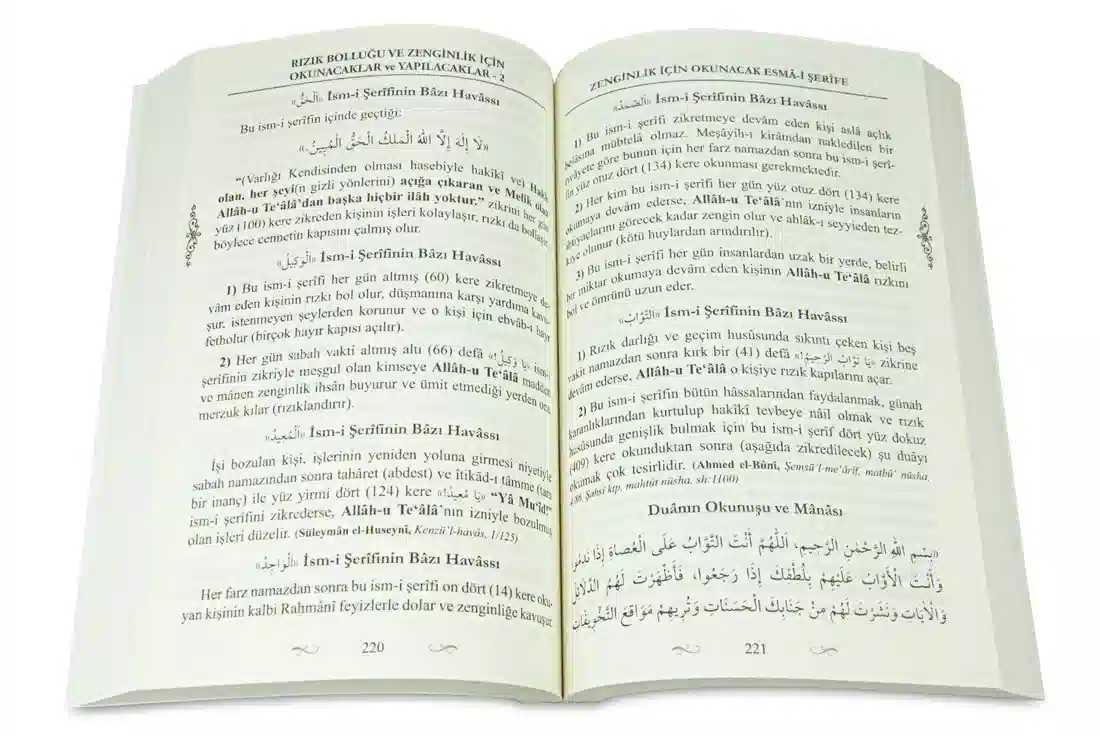 RIZIK BOLLUĞU VE ZENGİNLİK İÇİN
OKUNACAKLAR ve YAPILACAKLAR - 2
«اَلْحَقُّ» İsm-i Şerîfinin Bâzı Havâssı
Bu ism-i şerîfin içinde geçtiği:
«لَا إِلٰهَ إِلَّا اللهُ الْمَلِكُ الْحَقُّ الْمُبِينُ.»
“(Varlığı Kendisinden olması hasebiyle hakîkî ve) Hakk
olan, her şeyi(n gizli yönlerini) açığa çıkaran ve Melik olan
Allâh-u Te‘âlâ’dan başka hiçbir ilâh yoktur.” zikrini her gün
yüz (100) kere zikreden kişinin işleri kolaylaşır, rızkı da bollaşır,
böylece cennetin kapısını çalmış olur.
«اَلْوَكِيلُ» İsm-i Şerîfinin Bâzı Havâssı
1) Bu ism-i şerîfi her gün altmış (60) kere zikretmeye de-
vâm eden kişinin rızkı bol olur, düşmanına karşı yardıma kavu-
şur, istenmeyen şeylerden korunur ve o kişi için ebvâb-ı hayr
fetholur (birçok hayır kapısı açılır).
2) Her gün sabah vakti altmış altı (66) defâ «يَا وَكِيلُ!» ism-i
şerîfinin zikriyle meşgul olan kimseye Allâh-u Te‘âlâ madden
ve mânen zenginlik ihsân buyurur ve ümit etmediği yerden onu
merzuk kılar (rızıklandırır).
«اَلْمُعِيدُ» İsm-i Şerîfinin Bâzı Havâssı
İşi bozulan kişi, işlerinin yeniden yoluna girmesi niyetiyle
sabah namazından sonra tahâret (abdest) ve îtikād-ı tâmme (tam
bir inanç) ile yüz yirmi dört (124) kere «يَا مُعِيدُ!» “Yâ Mu‘îd!”
ism-i şerîfini zikrederse, Allâh-u Te‘âlâ’nın izniyle bozulmuş
olan işleri düzelir. (Süleymân el-Huseynî, Kenzü’l-havâs, 1/125)
«اَلْوَاجِدُ» İsm-i Şerîfinin Bâzı Havâssı
Her farz namazdan sonra bu ism-i şerîfi on dört (14) kere oku-
yan kişinin kalbi Rahmânî feyizlerle dolar ve zenginliğe kavuşur.
220
ZENGİNLİK İÇİN OKUNACAK ESMÂ-İ ŞERÎFE
«اَلصَّمَدُ» İsm-i Şerîfinin Bâzı Havâssı
1) Bu ism-i şerîfi zikretmeye devâm eden kişi aslâ açlık
belâsına mübtelâ olmaz. Meşâyih-ı kirâmdan nakledilen bir
rivâyete göre bunun için her farz namazdan sonra bu ism-i şerî-
fin yüz otuz dört (134) kere okunması gerekmektedir.
2) Her kim bu ism-i şerîfi her gün yüz otuz dört (134) kere
okumaya devâm ederse, Allâh-u Te‘âlâ’nın izniyle insanların
ihtiyaçlarını görecek kadar zengin olur ve ahlâk-ı seyyieden tez-
kiye olunur (kötü huylardan arındırılır).
3) Bu ism-i şerîfi her gün insanlardan uzak bir yerde, belirli
bir miktar okumaya devâm eden kişinin Allâh-u Te‘âlâ rızkını
bol ve ömrünü uzun eder.
«اَلتَّوَّابُ» İsm-i Şerîfinin Bâzı Havâssı
1) Rızık darlığı ve geçim husûsunda sıkıntı çeken kişi beş
vakit namazdan sonra kırk bir (41) defâ «يَا تَوَّابُ الرَّحِيمُ!» zikrine
devâm ederse, Allâh-u Te‘âlâ o kişiye rızık kapılarını açar.
2) Bu ism-i şerîfin bütün hâssalarından faydalanmak, günah
karanlıklarından kurtulup hakîkî tevbeye nâil olmak ve rızık
husûsunda genişlik bulmak için bu ism-i şerîf dört yüz dokuz
(409) kere okunduktan sonra (aşağıda zikredilecek) şu duâyı
okumak çok tesirlidir. (Ahmed el-Bûnî, Şemsü’l-me‘ârif, matbû‘ nüsha,
Şahsî ktp. mahtût nüsha, sh:1100)
Duânın Okunuşu ve Mânâsı
«بِسْمِ اللهِ الرَّحْمٰنِ الرَّحِيمِ، اَللّٰهُمَّ أَنْتَ التَّوَّابُ عَلَى الْعُصَاةِ إِذَا نَدِمُوا
وَأَنْتَ الْأَوَّابُ عَلَيْهِمْ بِلُطْفِكَ إِذَا رَجَعُوا، فَأَظْهَرْتَ لَهُمُ الدَّلَائِلَ
وَالْآيَاتِ وَنَشَرْتَ لَهُمْ مِنْ جَنَابِكَ الْحَسَنَاتِ وَتُرِيهِمْ مَوَاقِعَ التَّخْوِيفَاتِ
221